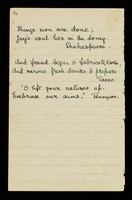 Things won are done;
Joy's soul lies in the doing.
Shakespeare.
And fraud began to fabricate
And various fresh deceits to prepare
"O lift your natures up:
Embrace our aims." Tennyson.